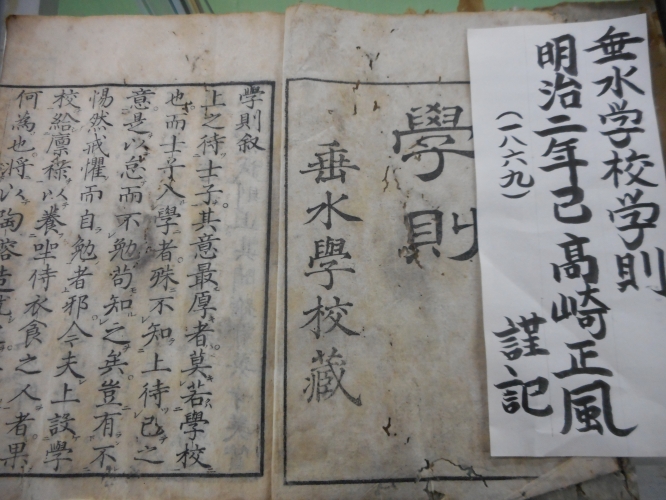 垂水学校学則
明治二年己 高崎正風
(一八六九) 謹記
學則
垂水學校藏
學則叙
上之待士子。其意最厚者。莫若學校
也。而士子入學者。殊不知上待己之
意。是以怠而不勉。苟知之矣。豈有不
惕然戒懼而自勉者邪。今夫上設學
校。給廩祿。以養坐待衣食之人者。果
何為也。將以陶